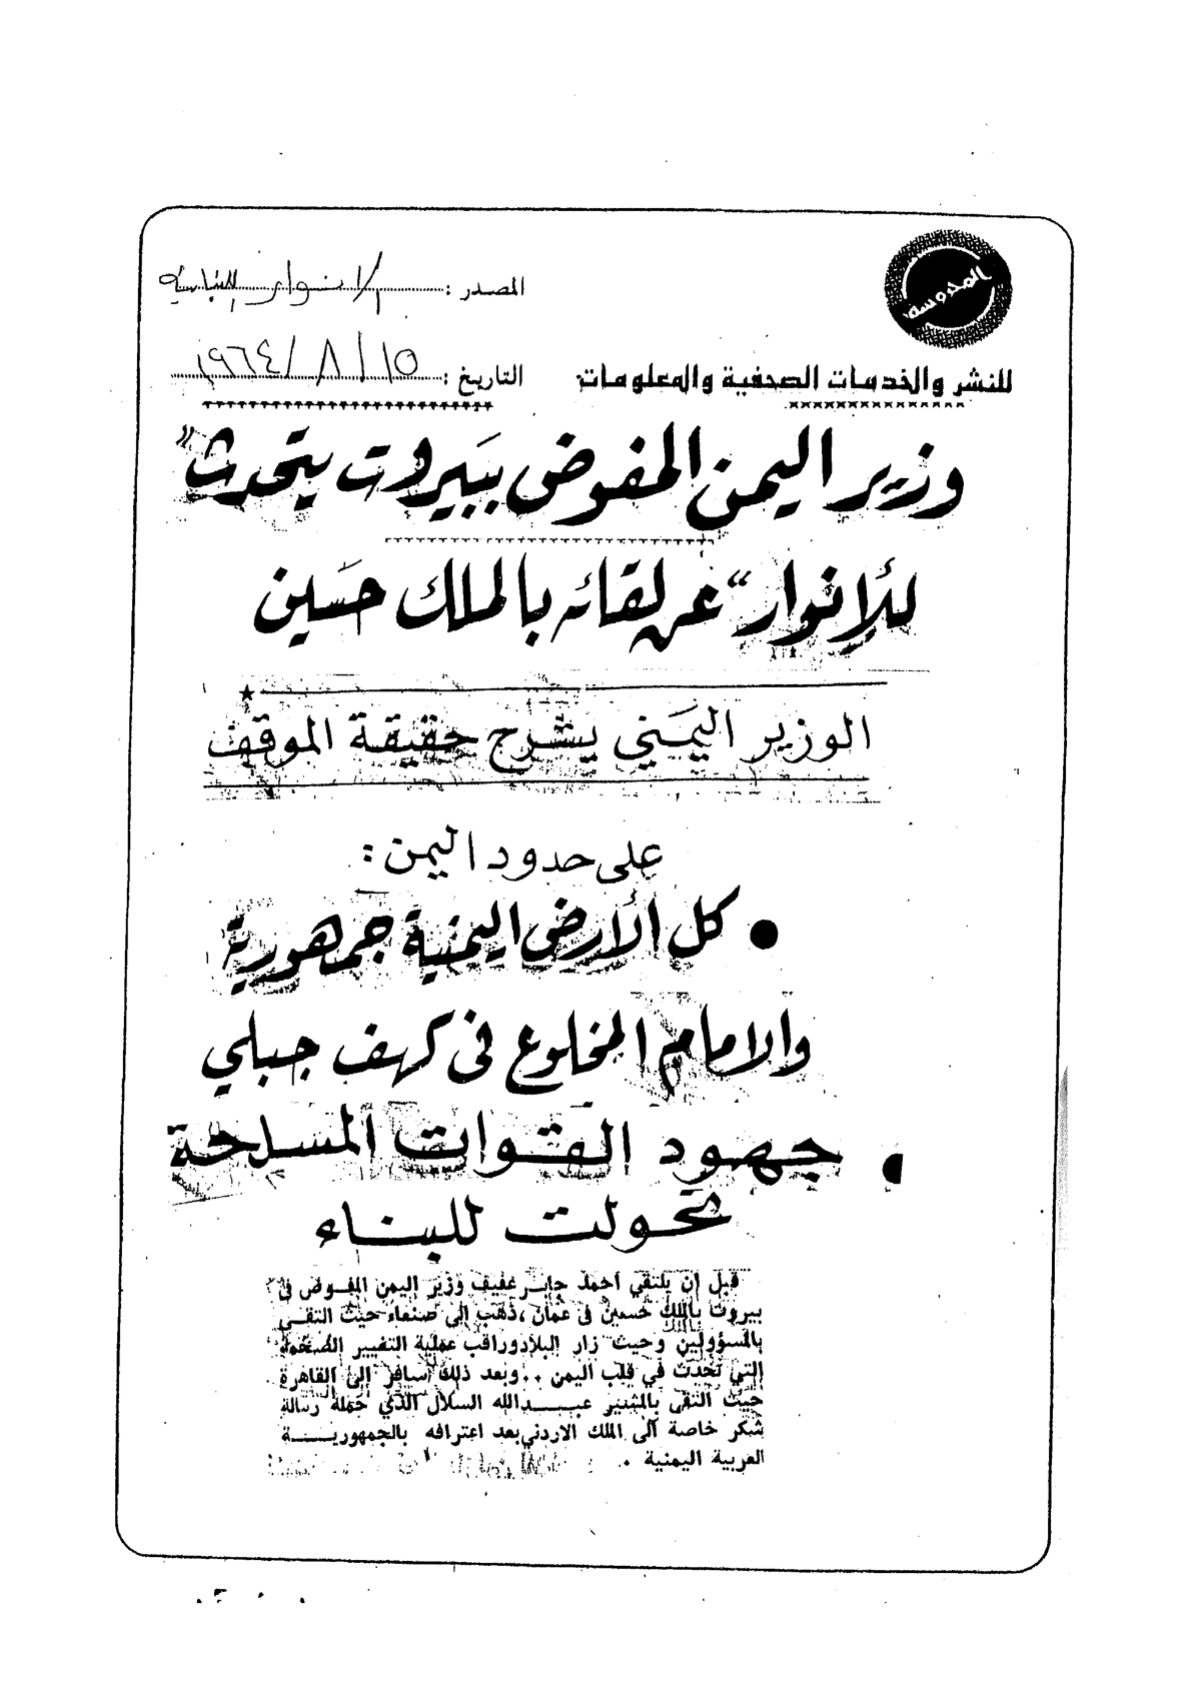 المحروسة
المصدر : الانوار اللبنانية
للنشر والخدمات الصحفية والمعلومات
التاريخ : ١٥ / ٨ / ١٩٦٤
وزير اليمن المفوض ببيروت يتحدث "
للأنوار " عن لقائه بالملك حسين
الوزير اليمني يشرح حقيقة الموقف
على حدود اليمن :
● كل الأرض اليمنية جمهورية
والامام المخلوع في كهف جبلي
● جهود القوات المسلحة
تحولت للبناء
قبل ان يلتقي احمد جابر عفيف وزير اليمن المفوض في
بيروت بالملك حسين في عمان ، ذهب الى صنعاء حيث التقى
بالمسؤولين وحيث زار البلاد وراقب عملية التغيير الضخمة
التي تحدث في قلب اليمن .. وبعد ذلك سافر الى القاهرة
حيث التقى بالمشير عبدالله السلال الذي حمله رسالة
شكر خاصة الى الملك الاردني بعد اعترافه بالجمهورية
العربية اليمنية .